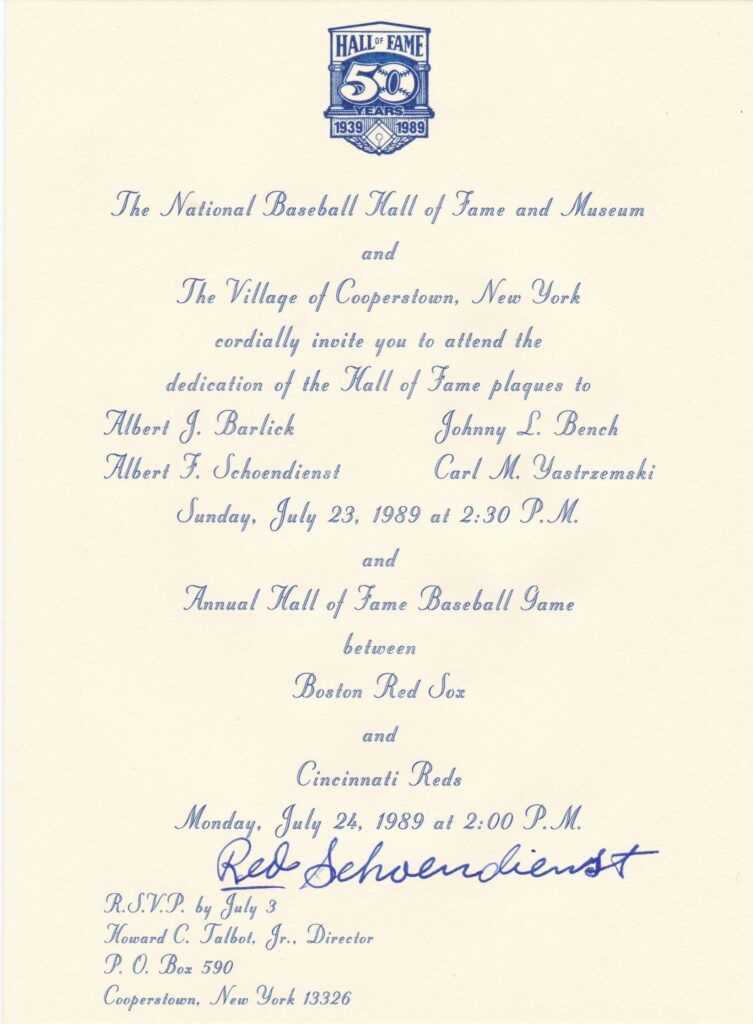 HALL OF FAME
50
YEARS
1939 1989
The National Baseball Hall of Fame and Museum
and
The Village of Cooperstown, New York
cordially invite you to attend the
dedication of the Hall of Fame plaques to
Albert J. Barlick Johnny L. Bench
Albert F. Schoendienst Carl M. Yastrzemski
Sunday, July 23, 1989 at 2:30 P.M.
and
Annual Hall of Fame Baseball Game
between
Boston Red Sox
and
Cincinnati Reds
Monday, July 24, 1989 at 2:00 P.M.
Red Schoendienst
R.S.V.P. by July 3
Howard C. Talbot, Jr., Director
P. O. Box 590
Cooperstown, New York 13326